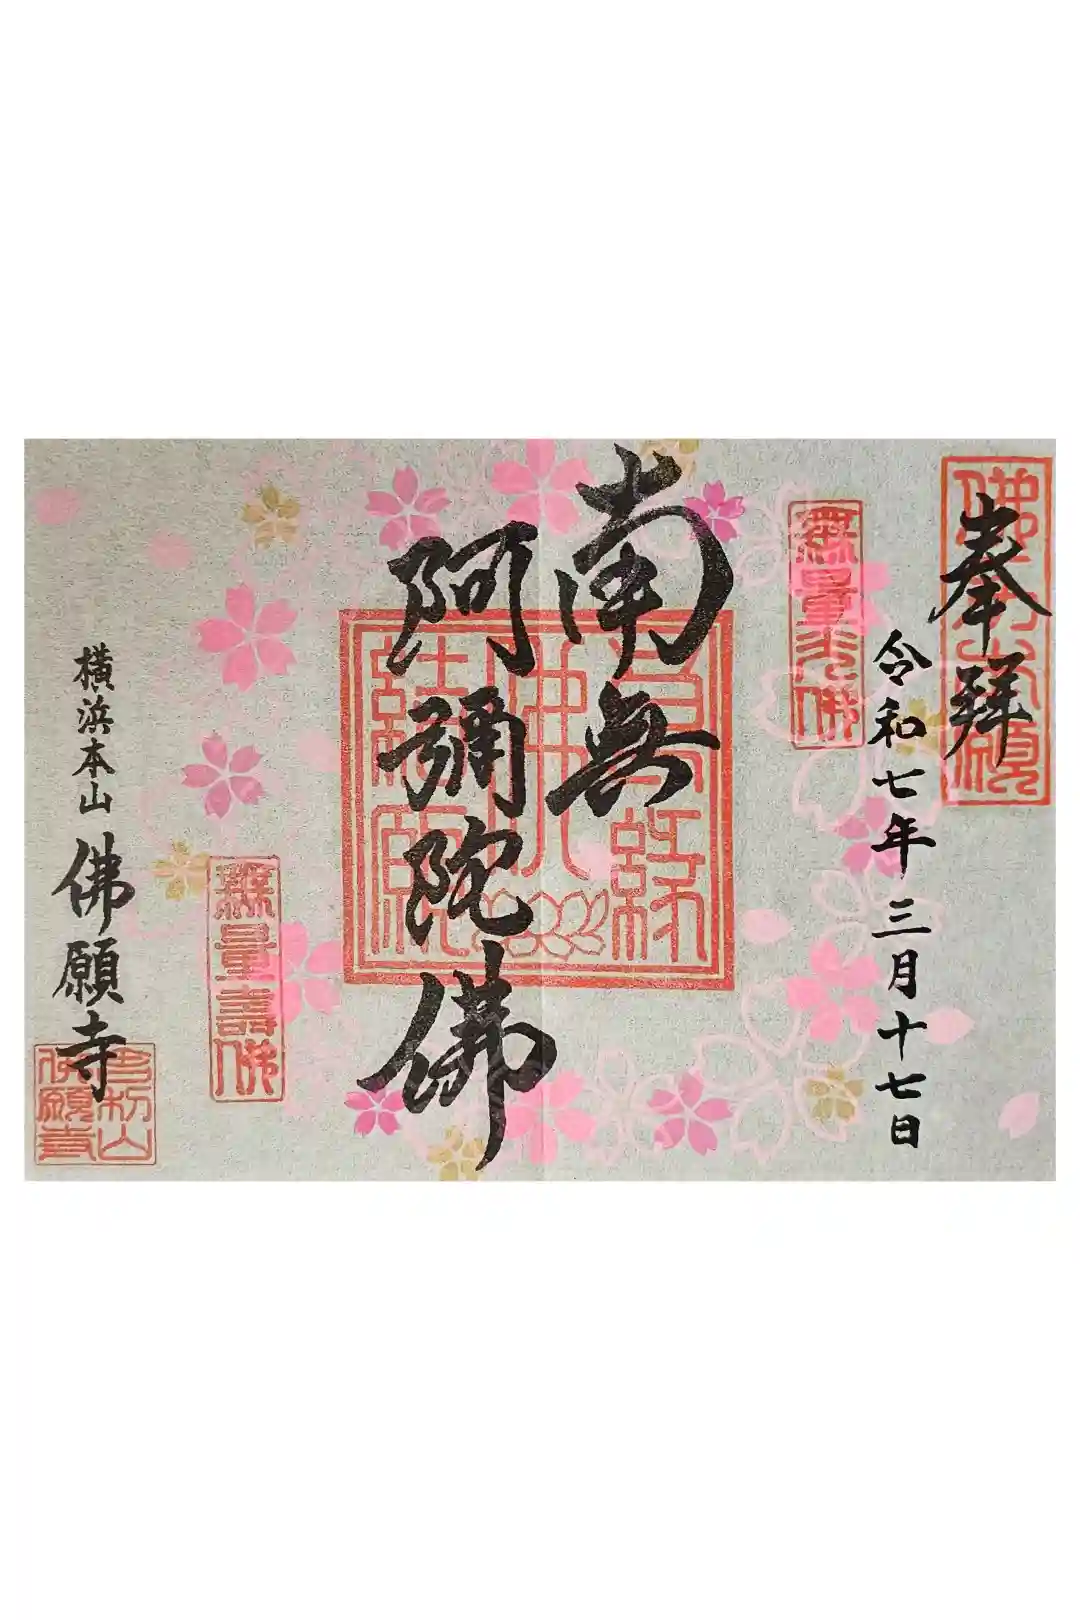 奉拜
令和七年三月十七日
無量光佛
南無
阿彌陀佛
無量壽佛
横浜本山 佛願寺